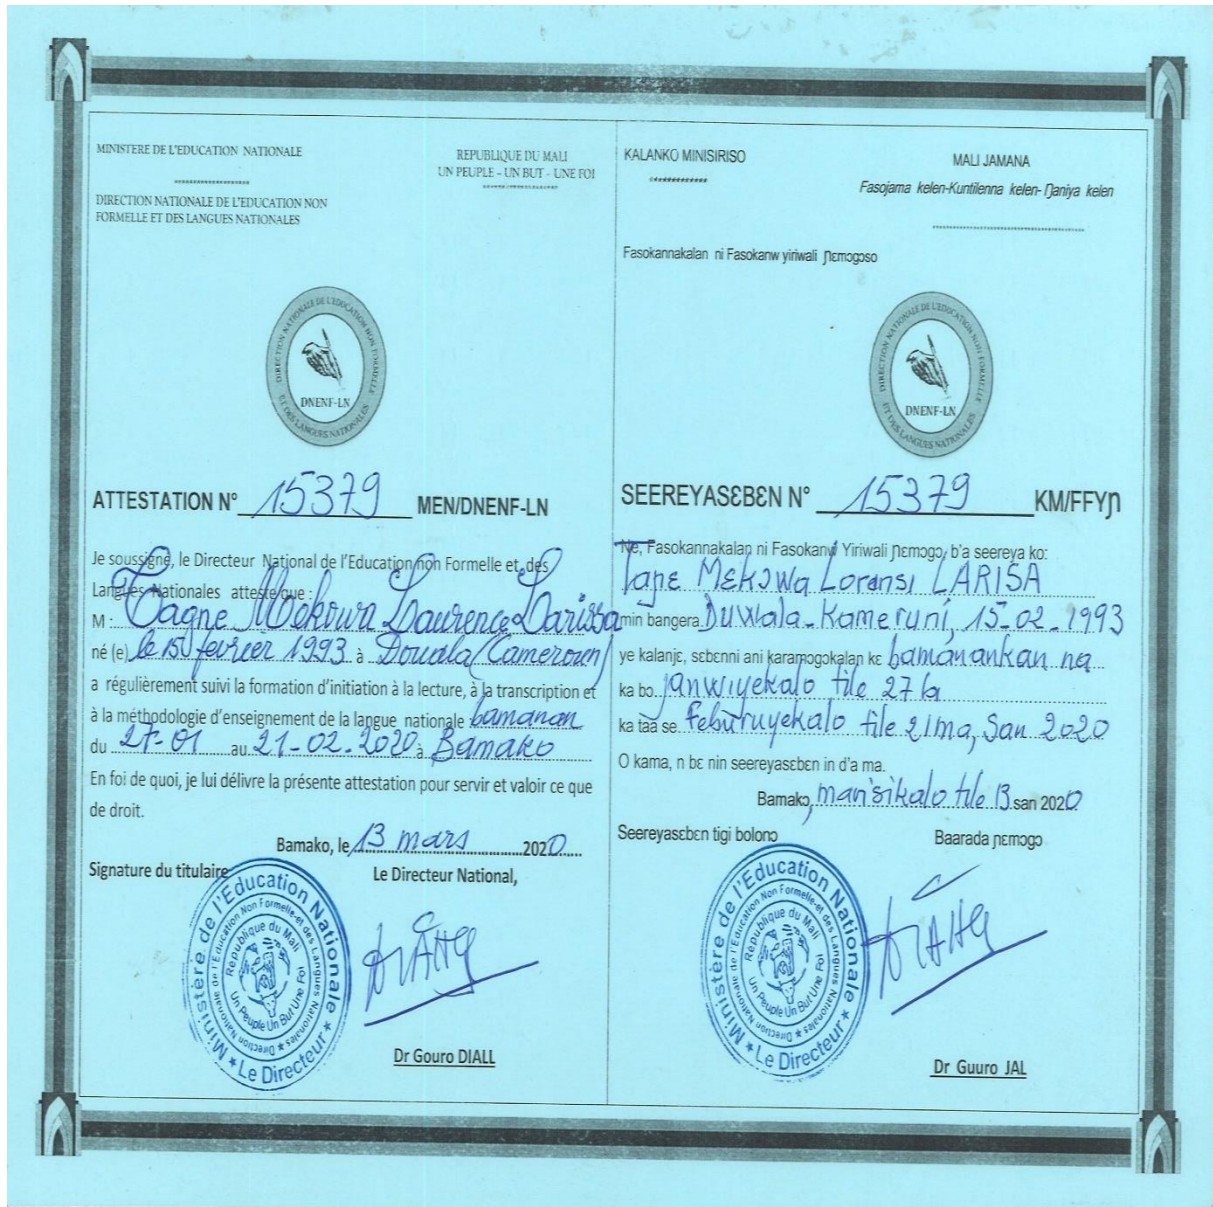 MINISTERE DE L'EDUCATION NATIONALE
REPUBLIQUE DU MALI
UN PEUPLE - UN BUT - UNE FOI
DIRECTION NATIONALE DE L'EDUCATION NON
FORMELLE ET DES LANGUES NATIONALES
DIRECTION NATIONALE DE L'EDUCATION NON FORMELLE
ET DES LANGUES NATIONALES
DNENF-LN
ATTESTATION N° 15379 MEN/DNENF-LN
Je soussigné, le Directeur National de l'Education non Formelle et des
Langues Nationales atteste que :
M : Tagne Mekowa Laurence Larissa
né (e) le 15 février 1993 à Douala (Cameroun)
a régulièrement suivi la formation d'initiation à la lecture, à la transcription et
à la méthodologie d'enseignement de la langue nationale bamanan
du 27-01 au 21-02-2020 à Bamako
En foi de quoi, je lui délivre la présente attestation pour servir et valoir ce que
de droit.
Bamako, le 13 mars 2020
Signature du titulaire
Le Directeur National,
Ministère de l'Education Nationale
Direction Nationale de l'Education Non Formelle et des Langues Nationales
République du Mali
Un Peuple Un But Une Foi
Le Directeur
Dr Gouro DIALL
KALANKO MINISIRISO
MALI JAMANA
Fasojama kelen-Kuntilenna kelen- Ŋaniya kelen
Fasokannakalan ni Fasokanw yiriwali ɲɛmɔgɔso
DIRECTION NATIONALE DE L'EDUCATION NON FORMELLE
ET DES LANGUES NATIONALES
DNENF-LN
SEEREYASƐBƐN N° 15379 KM/FFYƝ
Ne, Fasokannakalan ni Fasokanw Yiriwali ɲɛmɔgɔ, b'a seereya ko:
Taɲe Mɛkowa Loransi LARISA
min bangera Duwala-Kameruni, 15-02-1993
ye kalanjɛ, sɛbɛnni ani karamɔgɔkalan kɛ bamanankan na
ka bɔ zanwiyekalo tile 27 la
ka taa se feburuyekalo tile 21 ma, san 2020
O kama, n bɛ nin seereyasɛbɛn in d'a ma.
Bamakɔ, marisikalo tile 13 san 2020
Seereyasɛbɛn tigi bolonɔ
Baarada ɲɛmɔgɔ
Ministère de l'Education Nationale
Direction Nationale de l'Education Non Formelle et des Langues Nationales
République du Mali
Un Peuple Un But Une Foi
Le Directeur
Dr Guuro JAL